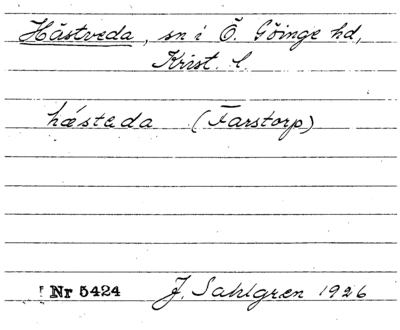 Hästveda, sn i Ö. Göinge hd,
Krist. l.
hǽstada (Farstorp)
Nr 5424 J. Sahlgren 1926